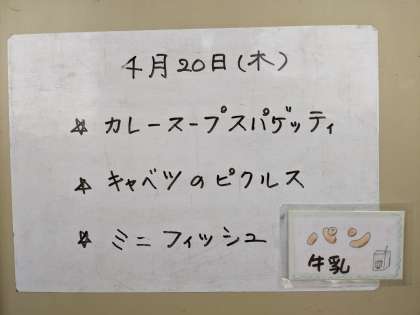 4月20日(木)
☆ カレースープスパゲッティ
☆ キャベツのピクルス
☆ ミニフィッシュ
牛乳